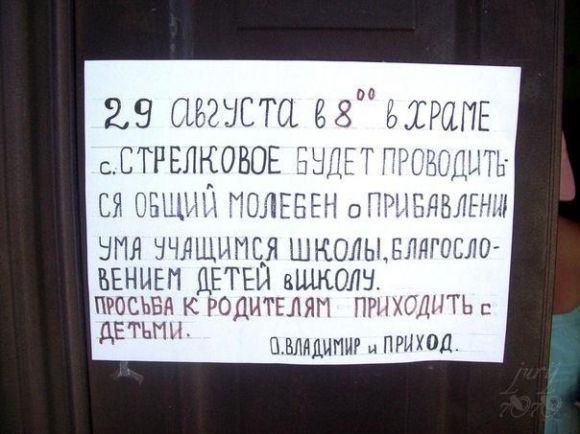 29 АВГУСТА в 8⁰⁰ в ХРАМЕ
с. СТРЕЛКОВОЕ БУДЕТ ПРОВОДИТЬ-
СЯ ОБЩИЙ МОЛЕБЕН о ПРИБАВЛЕНИИ
УМА УЧАЩИМСЯ ШКОЛЫ, БЛАГОСЛО-
ВЕНИЕМ ДЕТЕЙ в ШКОЛУ.
ПРОСЬБА К РОДИТЕЛЯМ ПРИХОДИТЬ с
ДЕТЬМИ.
О. ВЛАДИМИР и ПРИХОД.
jury